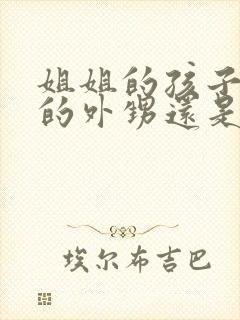 姐姐的孩子
的外甥還是
埃尔布吉巴